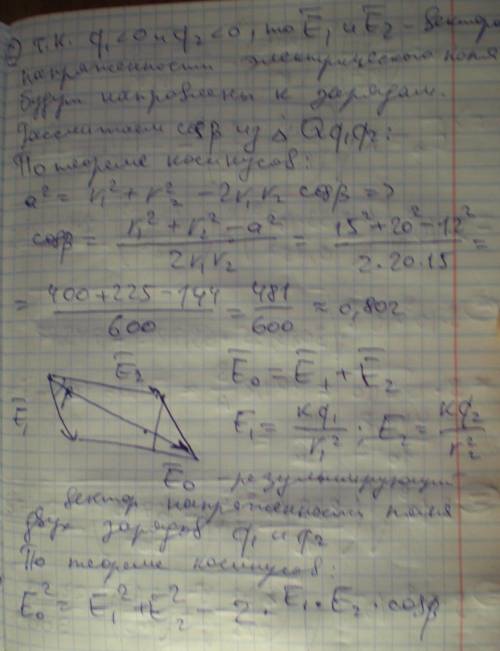 2) т.к. q₁<0 и q₂<0, то E̅₁ и E̅₂ - вектора
напряженности электрического поля
будут направлены к зарядам.
Рассчитаем cosβ из △ Qq₁q₂:
По теореме косинусов:
a² = r₁² + r₂² - 2r₁r₂ cosβ =>
cosβ = (r₁² + r₂² - a²) / (2r₁r₂) = (15² + 20² - 12²) / (2·20·15) =
= (400+225-144) / 600 = 481/600 ≈ 0,802
E̅₂
E̅₁
E̅₀ = E̅₁ + E̅₂
E₁ = kq₁/r₁² ; E₂ = kq₂/r₂²
E̅₀ - результирующий
вектор напряженности поля
двух зарядов q₁ и q₂
По теореме косинусов:
E₀² = E₁² + E₂² - 2·E₁·E₂·cosβ